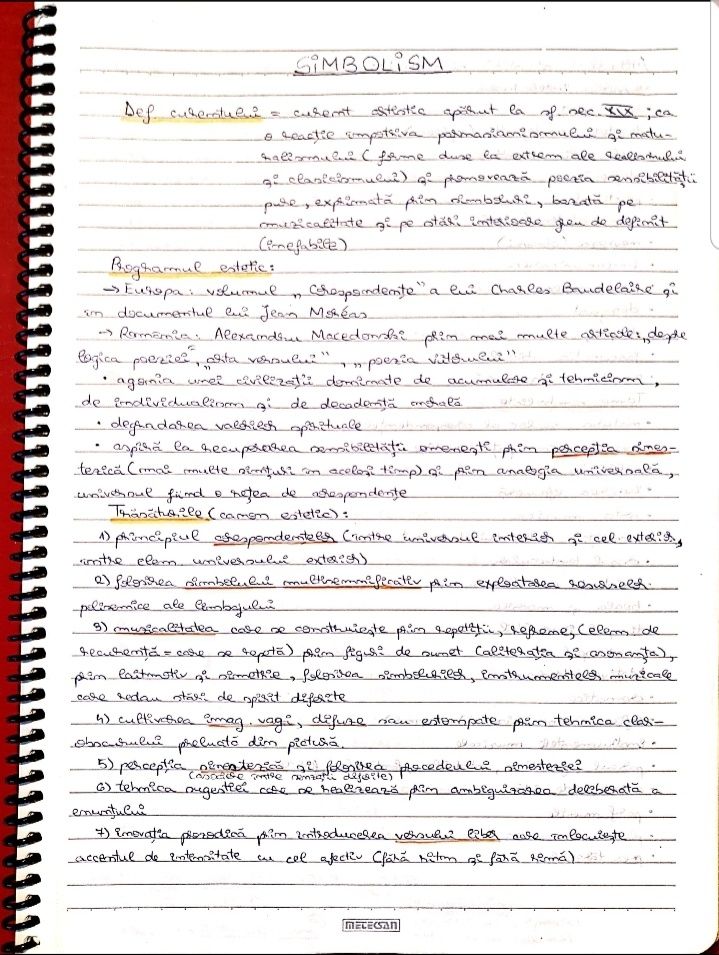 SIMBOLISM
Def. curentului = curent artistic apărut la sf. sec. XIX ; ca
o reacție împotriva parnasianismului și natu-
ralismului (forme duse la extrem ale realismului
și clasicismului) și promovează poezia sensibilității
pure, exprimată prin simboluri, bazată pe
muzicalitate și pe stări interioare greu de definit
(inefabile)
Programul estetic:
→ Europa: volumul „Corespondențe" a lui Charles Baudelaire și
în documentul lui Jean Moréas
→ România: Alexandru Macedonski prin mai multe articole: „despre
logica poeziei", „arta versului", „poezia viitorului"
• agonia unei civilizații dominate de acumulare și tehnicism,
de individualism și de decadență morală
• degradarea valorilor spirituale
• aspiră la recuperarea sensibilității omenești prin percepția sines-
tezică (mai multe simțuri în același timp) și prin analogia universală,
universul fiind o rețea de corespondențe
Trăsăturile (canon estetic):
1) principiul corespondențelor (între universul interior și cel exterior,
între elem. universului exterior)
2) folosirea simbolului multisemnificativ prin exploatarea resurselor
polisemice ale limbajului
3) muzicalitatea care se construiește prin repetiții, refrene, (elem. de
recurență = care se repetă) prin figuri de sunet (aliterația și asonanța),
prin laitmotiv și simetrie, folosirea simbolurilor, instrumentelor muzicale
care redau stări de spirit diferite
4) cultivarea imag. vagi, difuze sau estompate prin tehnica clar-
obscurului preluată din pictură.
5) percepția sinestezică și folosirea procedeului sinesteziei
(asociere între senzații diferite)
6) tehnica sugestiei care se realizează prin ambiguizarea deliberată a
enunțului
7) inovația prozodică prin introducerea versului liber care înlocuiește
accentul de intensitate cu cel afectiv (fără ritm și fără rimă)
METEKSAN